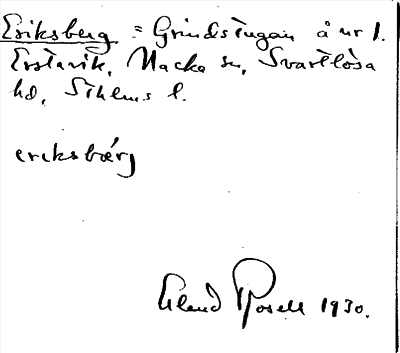 Eriksberg = Grindstugan å nr 1.
Erstavik, Nacka sn, Svartlösa
hd, Sthlms l.
eriksbærg
Erland Rosell 1930.